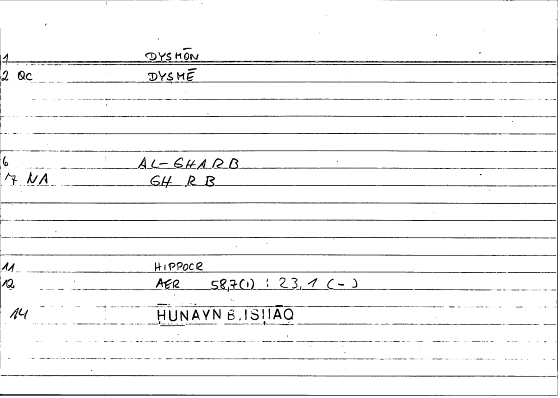 1 DYSMŌN
2 QC DYSMĒ
6 AL-GHARB
7 NA GH R B
11 HIPPOCR
12 AER 58,7(1) : 23,1 (-)
14 ḤUNAYN B. ISḤĀQ